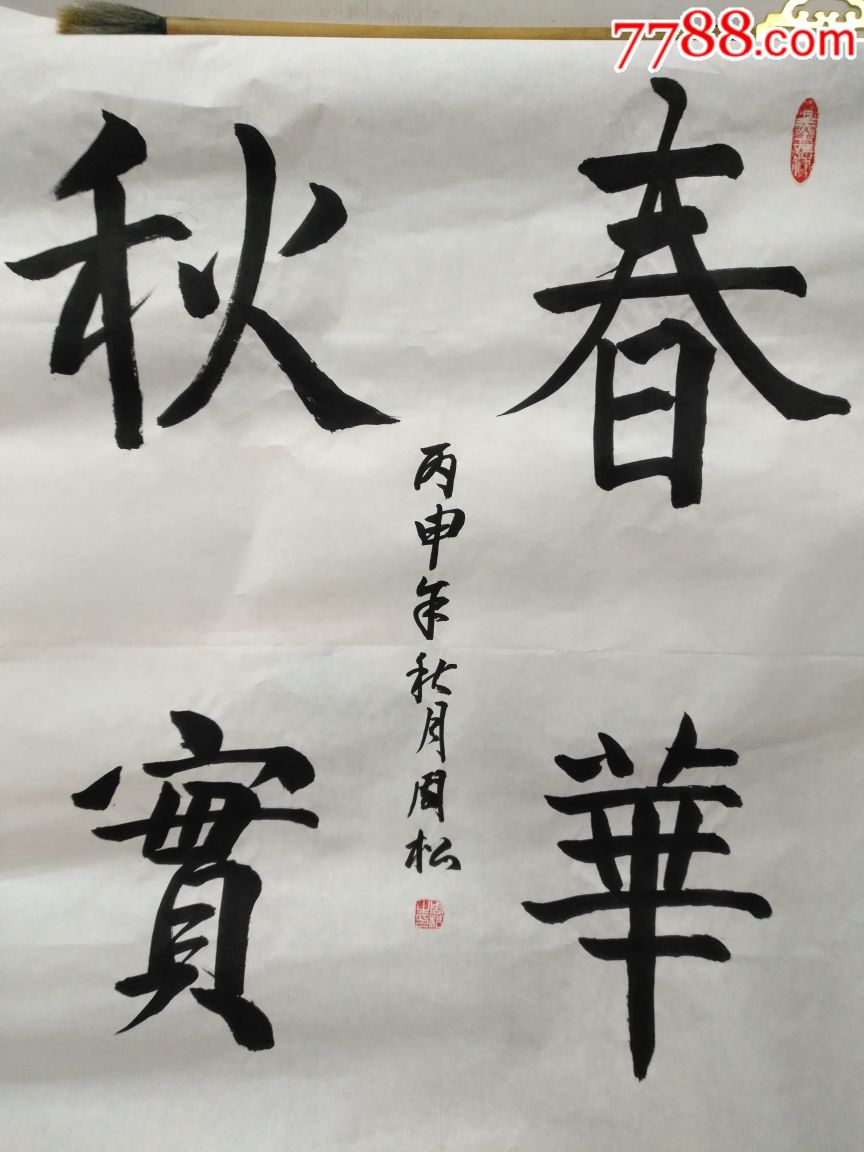 7788.com
春華
秋實
丙申年秋月周松